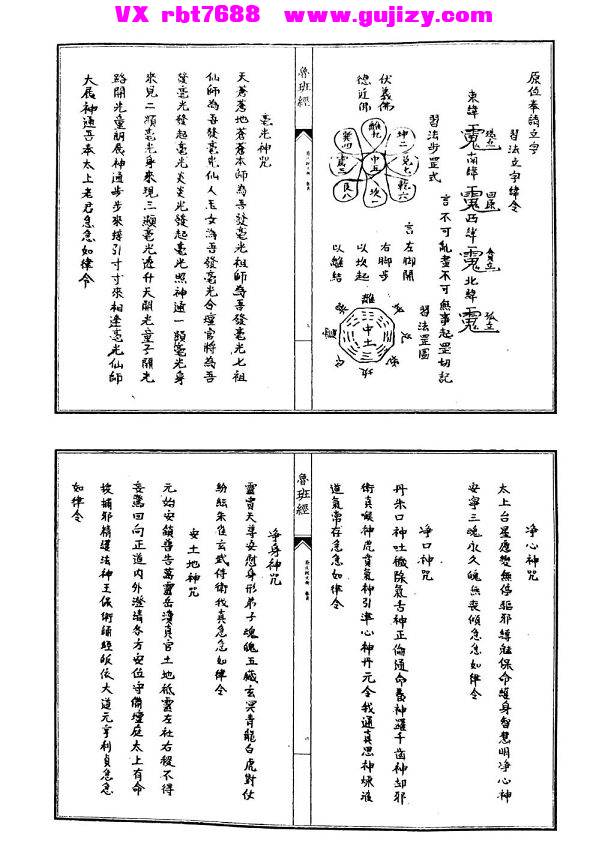 VX rbt7688 www.gujizy.com
原位奉請立字
習法立字緯令
東緯 南緯 西緯 北緯
言不可亂畫不可無事起罡切記
習法步罡式
伏羲佛
德近佛
離九
坤二
兌七
乾六
坎一
艮八
震三
巽四
中五
言左脚開
右脚步
以坎起
以離結
習法罡圖
離
坎
中土
魯班經
毫光神咒
天蒼蒼地蒼蒼本師為吾發毫光祖師為吾發毫光七祖
仙師為吾發毫光仙人玉女為吾發毫光合壇官將為吾
發毫光發起毫光炎炎光發起毫光照神通一顆毫光身
來見二顆毫光身來現三顆毫光透升天開光童子開光
路開光童朗展神通步步來縛引寸寸來相逢毫光仙師
大展神通吾奉太上老君急急如律令
净心神咒
太上台星應變無停驅邪縛魅保命護身智慧明净心神
安寧三魂永久魄無喪傾急急如律令
净口神咒
丹朱口神吐穢除氛舌神正倫通命養神羅千齒神却邪
衛真喉神虎賁氣神引津心神丹元令我通真思神煉液
道氣常存急急如律令
魯班經
净身神咒
靈寶天尊安慰身形弟子魂魄五臟玄冥青龍白虎對仗
紛紜朱雀玄武侍衛我真急急如律令
安土地神咒
元始安鎮普告萬靈岳瀆真官土地祗靈左社右稷不得
妄驚回向正道内外澄清各方安位守備壇庭太上有命
搜捕邪精護法神王保衛誦經皈依大道元亨利貞急急
如律令